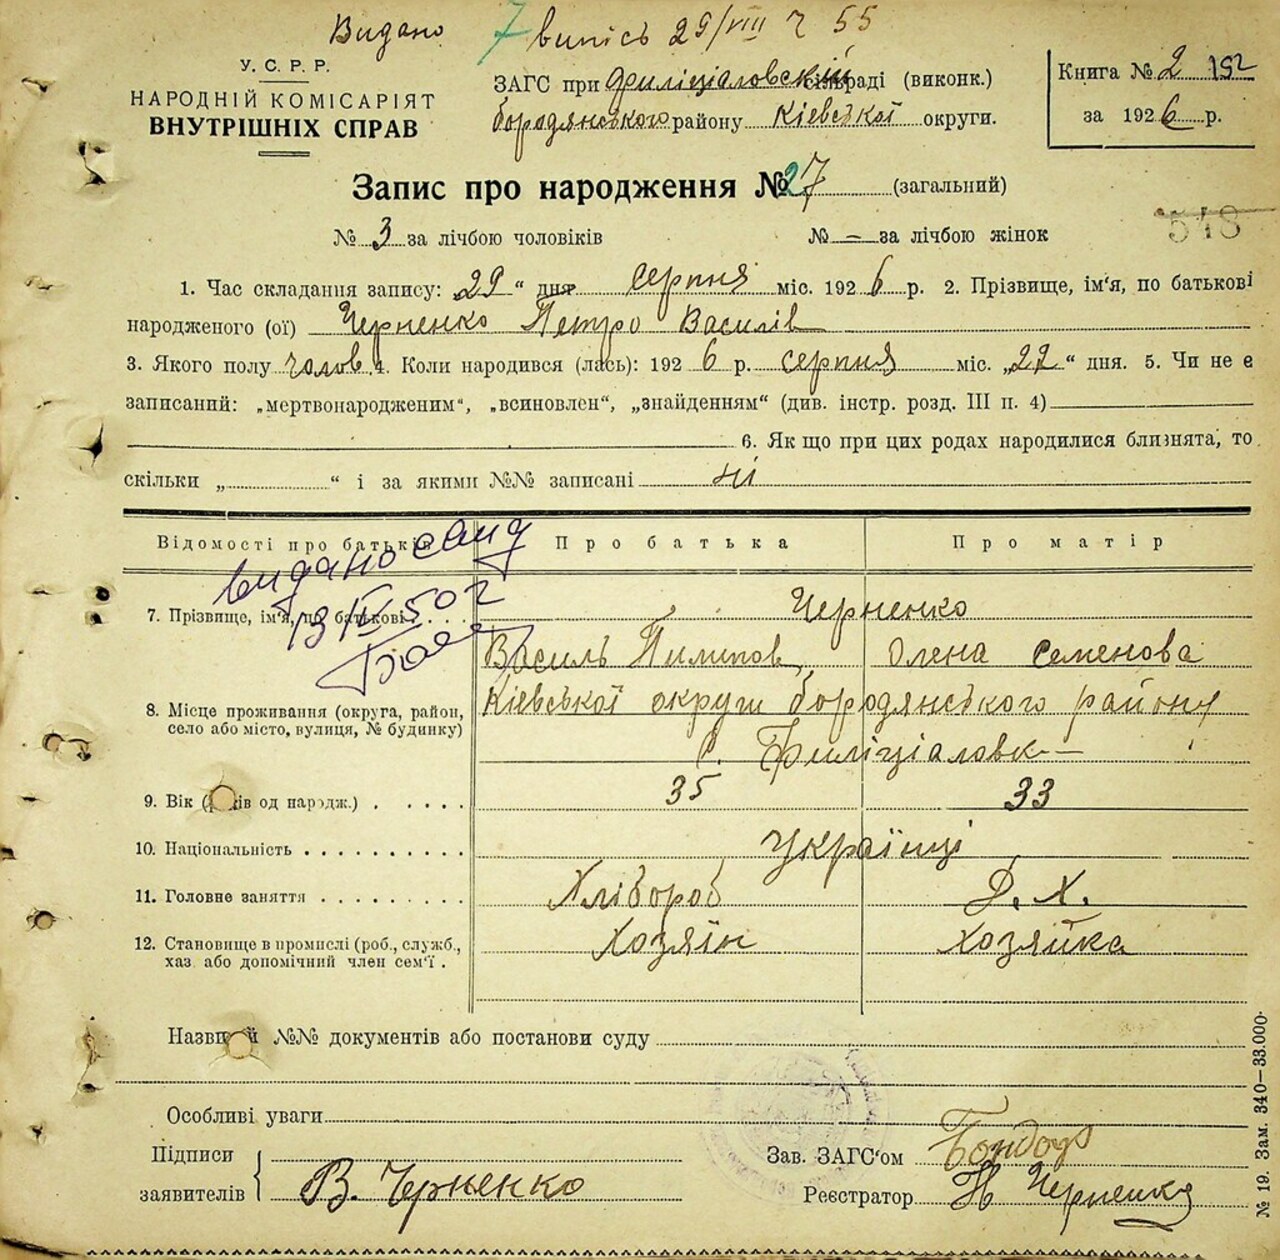 Видано 7 випісь 29/VIII 55
У. С. Р. Р.
НАРОДНІЙ КОМІСАРІЯТ
ВНУТРІШНІХ СПРАВ
ЗАГС при Филіціаловскій сільраді (виконк.)
бородянського району Кіевської округи.
Книга № 2 192
за 1926 р.
Запис про народження № 27 (загальний)
№ 3 за лічбою чоловіків № — за лічбою жінок
548
1. Час складання запису: „29“ дня серпня міс. 1926 р. 2. Прізвище, ім'я, по батькові
народженого (ої) Черненко Петро Василів
3. Якого полу чолов. 4. Коли народився (лась): 1926 р. серпня міс. „22“ дня. 5. Чи не є
записаний: „мертвонародженим“, „всиновлен“, „знайденням“ (див. інстр. розд. III п. 4)
6. Як що при цих родах народилися близнята, то
скільки „ “ і за якими №№ записані ні
Відомості про батьків Про батька Про матір
видано
13 IV 50 г
7. Прізвище, ім'я, по батькові Черненко
Василь Пилипов Олена Семенова
8. Місце проживання (округа, район, село або місто, вулиця, № будинку) Кіевської округи бородянського району
с. Филіціаловк—
9. Вік (років од народж.) 35 33
10. Національність українці
11. Головне заняття Хлібороб Д. Х.
12. Становище в промислі (роб., служб., хаз. або допомічний член сем'ї. Хозяїн Хозяйка
Назви й №№ документів або постанови суду
Особливі уваги
Підписи заявителів В. Черненко
Зав. ЗАГС'ом
Реєстратор Черненко
№ 19. Зам. 340—33.000.